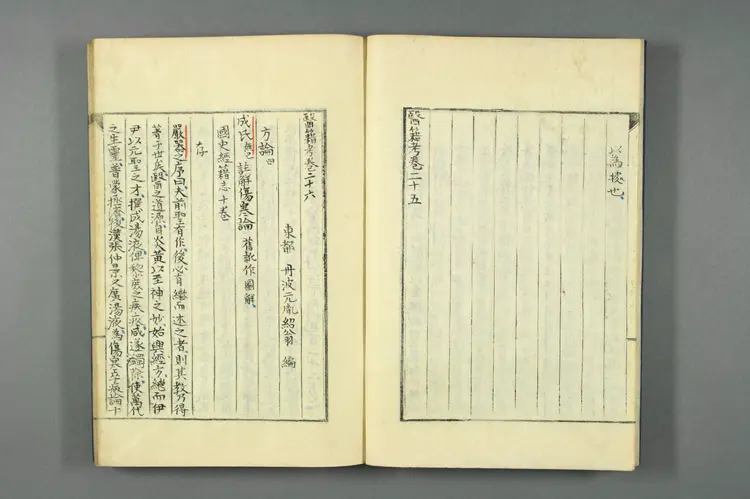 以爲據也
醫籍考卷二十五
醫籍考卷二十六
東都 丹波元胤紹翁 編
方論四
成氏無己註解傷寒論 舊新作圖解
國史經籍志十卷
存
嚴器之序曰夫前聖有作後必有繼而述之者則其教乃得
著于世矣醫之道源自炎黃以至神之妙始興經方繼而伊
尹以元聖之才撰成湯液俾黎庶之疾疢咸遂蠲除使萬代
之生靈普蒙拯濟後漢張仲景又廣湯液爲傷寒卒病論十